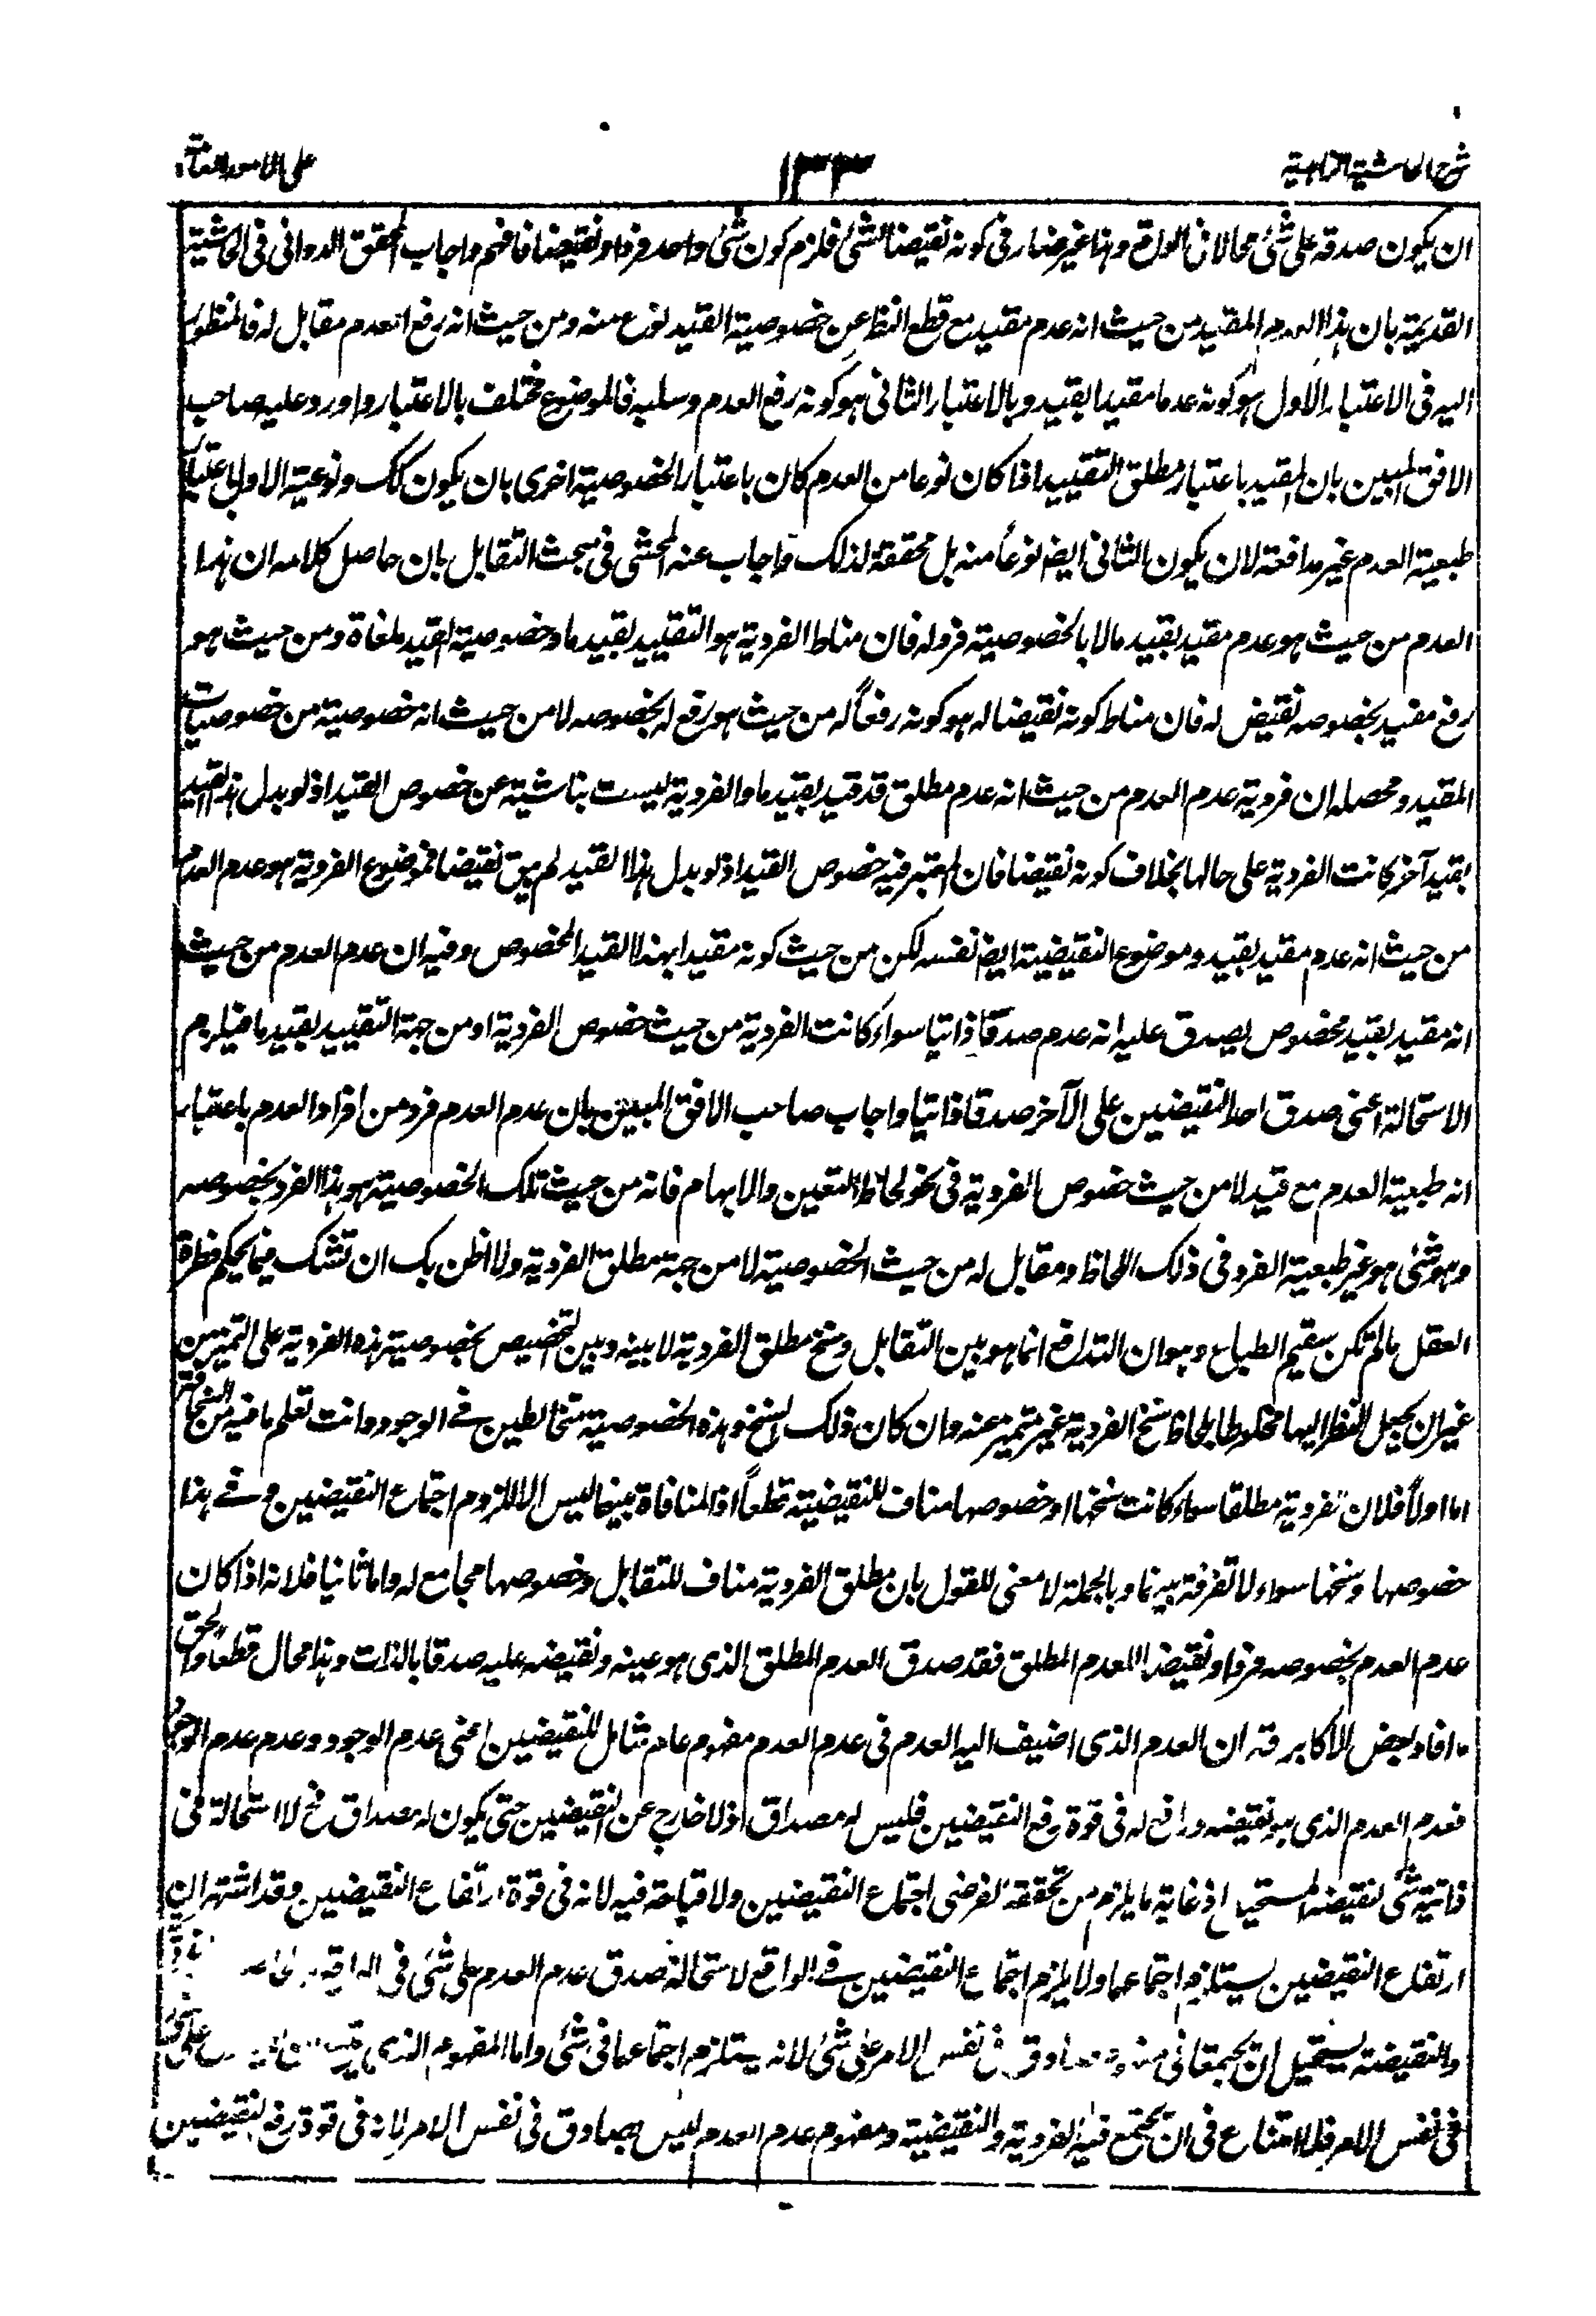 شرح الحاشية الزاهدية ١٣٣ على الامور العامة
ان يكون صدقه على شئ محالا فى الواقع وهذا غير ضار فى كونه نقيضا لشئ فلزم كون شئ واحد فردا ونقيضا فافهم واجاب المحقق الدوانى فى الحاشية
القديمة بان هذا العدم المقيد من حيث انه عدم مقيد مع قطع النظر عن خصوصية القيد نوع منه ومن حيث انه رفع العدم مقابل له فالمنظور
اليه فى الاعتبار الاول هو كونه عدما مقيدا بقيد وبالاعتبار الثانى هو كونه رفع العدم وسلبه فالموضوع مختلف بالاعتبار واورد عليه صاحب
الافق المبين بان المقيد باعتبار مطلق التقييد اذا كان نوعا من العدم كان باعتبار الخصوصية اخرى بان يكون كك ونوعية الاول باعتبار
طبعية العدم غير مدافعة لان يكون الثانى ايضا نوعاً منه بل محققة لذلك واجاب عنه المحشى فى مبحث التقابل بان حاصل كلامه ان هذا
العدم من حيث هو عدم مقيد بقيد ما لا بالخصوصية فرد له فان مناط الفردية هو التقييد بقيد ما وخصوصية القيد ملغاة ومن حيث هو
رفع مقيد بخصوصه نقيض له فان مناط كونه نقيضا له هو كونه رفعاً له من حيث هو رفع له بخصوصه لا من حيث انه خصوصية من خصوصيات
المقيد ومحصله ان فردية عدم العدم من حيث انه عدم مطلق قد قيد بقيد ما والفردية ليست بناشية عن خصوص القيد اذ لو بدل هذا القيد
بقيد آخر كانت الفردية على حالها بخلاف كونه نقيضا فان المعتبر فيه خصوص القيد اذ لو بدل هذا القيد لم يبق نقيضا فموضوع الفردية هو عدم العدم
من حيث انه عدم مقيد بقيد وموضوع النقيضية ايضا نفسه لكن من حيث كونه مقيدا بهذا القيد المخصوص وفيه ان عدم العدم من حيث
انه مقيد بقيد مخصوص يصدق عليه انه عدم صدقا ذاتيا سواء كانت الفردية من حيث خصوص الفردية او من جهة التقييد بقيد ما فيلزم
الاستحالة اعنى صدق احد النقيضين على الآخر صدقا ذاتيا واجاب صاحب الافق المبين بان عدم العدم فرد من افراد العدم باعتبار
انه طبعية العدم مع قيد لا من حيث خصوص الفردية فى نحو لحاظ التعين والابهام فانه من حيث تلك الخصوصية هو هذا الفرد بخصوصه
وهو شئ هو غير طبعية الفرد فى ذلك اللحاظ ومقابل له من حيث الخصوصية لا من جهة مطلق الفردية ولا اظن بك ان تشك فيما يحكم فطرة
العقل ما لم تكن سقيم الطباع وهو ان التدافع انما هو بين التقابل وسنخ مطلق الفردية لا بينه وبين التخصيص بخصوصية هذه الفردية على التميز من
غير ان يجعل النظر اليها مخلوطا بلحاظ سنخ الفردية غير متميز عنه وان كان ذلك السنخ وهذه الخصوصية متخالطين فى الوجود وانت تعلم ما فيه من السخافة
اما اولاً فلان الفردية مطلقا سواء كانت سنخها او خصوصها مناف للنقيضية قطعاً اذ المنافاة بينهما ليس الا للزوم اجتماع النقيضين وفى هذا
خصوصها وسنخها سواء لا تفرقة بينهما وبالجملة لا معنى للقول بان مطلق الفردية مناف للتقابل وخصوصها مجامع له واما ثانيا فلانه اذا كان
عدم العدم بخصوصه فردا ونقيضا للعدم المطلق فقد صدق العدم المطلق الذى هو عينه ونقيضه عليه صدقا بالذات وهذا محال قطعا والحق
ما افاد بعض الاكابر قه ان العدم الذى اضيف اليه العدم فى عدم العدم مفهوم عام شامل للنقيضين اعنى عدم الوجود وعدم عدم الوجود
فعدم العدم الذى هو نقيضه ورافع له فى قوة رفع النقيضين فليس له مصداق اذ لا خارج عن النقيضين حتى يكون له مصداق فح لا استحالة فى
ذاتية شئ لنقيضه المستحيل اذ غاية ما يلزم من تحققه الفرضى اجتماع النقيضين ولا قباحة فيه لانه فى قوة ارتفاع النقيضين وقد اشتهر ان
ارتفاع النقيضين يستلزم اجتماعهما ولا يلزم اجتماع النقيضين فى الواقع لاستحالة صدق عدم العدم على شئ فى الواقع
والنقيضة يستحيل ان تجتمعا فى نفس الامر على شئ لانه يستلزم اجتماعهما فى شئ واما المفهوم الذى
فى نفس الامر فلا امتناع فى ان تجتمع فيه الفردية والنقيضية ومفهوم عدم العدم ليس بصادق فى نفس الامر لانه فى قوة رفع النقيضين